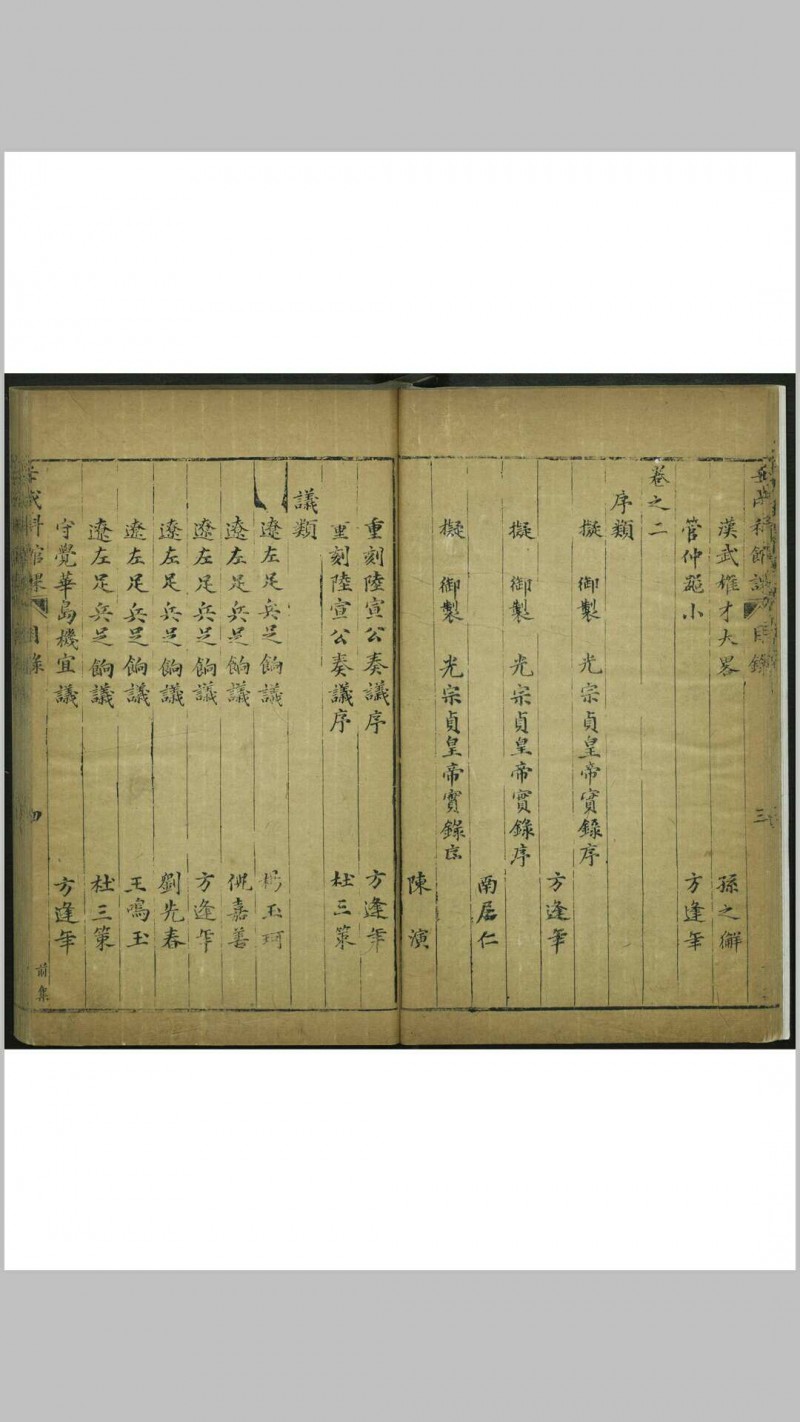 漢武雄才大畧 孫之獬
管仲噐小 方逢年
卷之二
序類
擬 御製 光宗貞皇帝實錄序
方逢年
擬 御製 光宗貞皇帝實錄序
南居仁
擬 御製 光宗貞皇帝實錄序
陳演
重刻陸宣公奏議序 方逢年
重刻陸宣公奏議序 杜三策
議類
遼左足兵足餉議 楊玉珂
遼左足兵足餉議 倪嘉善
遼左足兵足餉議 方逢年
遼左足兵足餉議 劉先春
遼左足兵足餉議 王鳴玉
遼左足兵足餉議 杜三策
守覺華島機宜議 方逢年
館課 目錄 前集